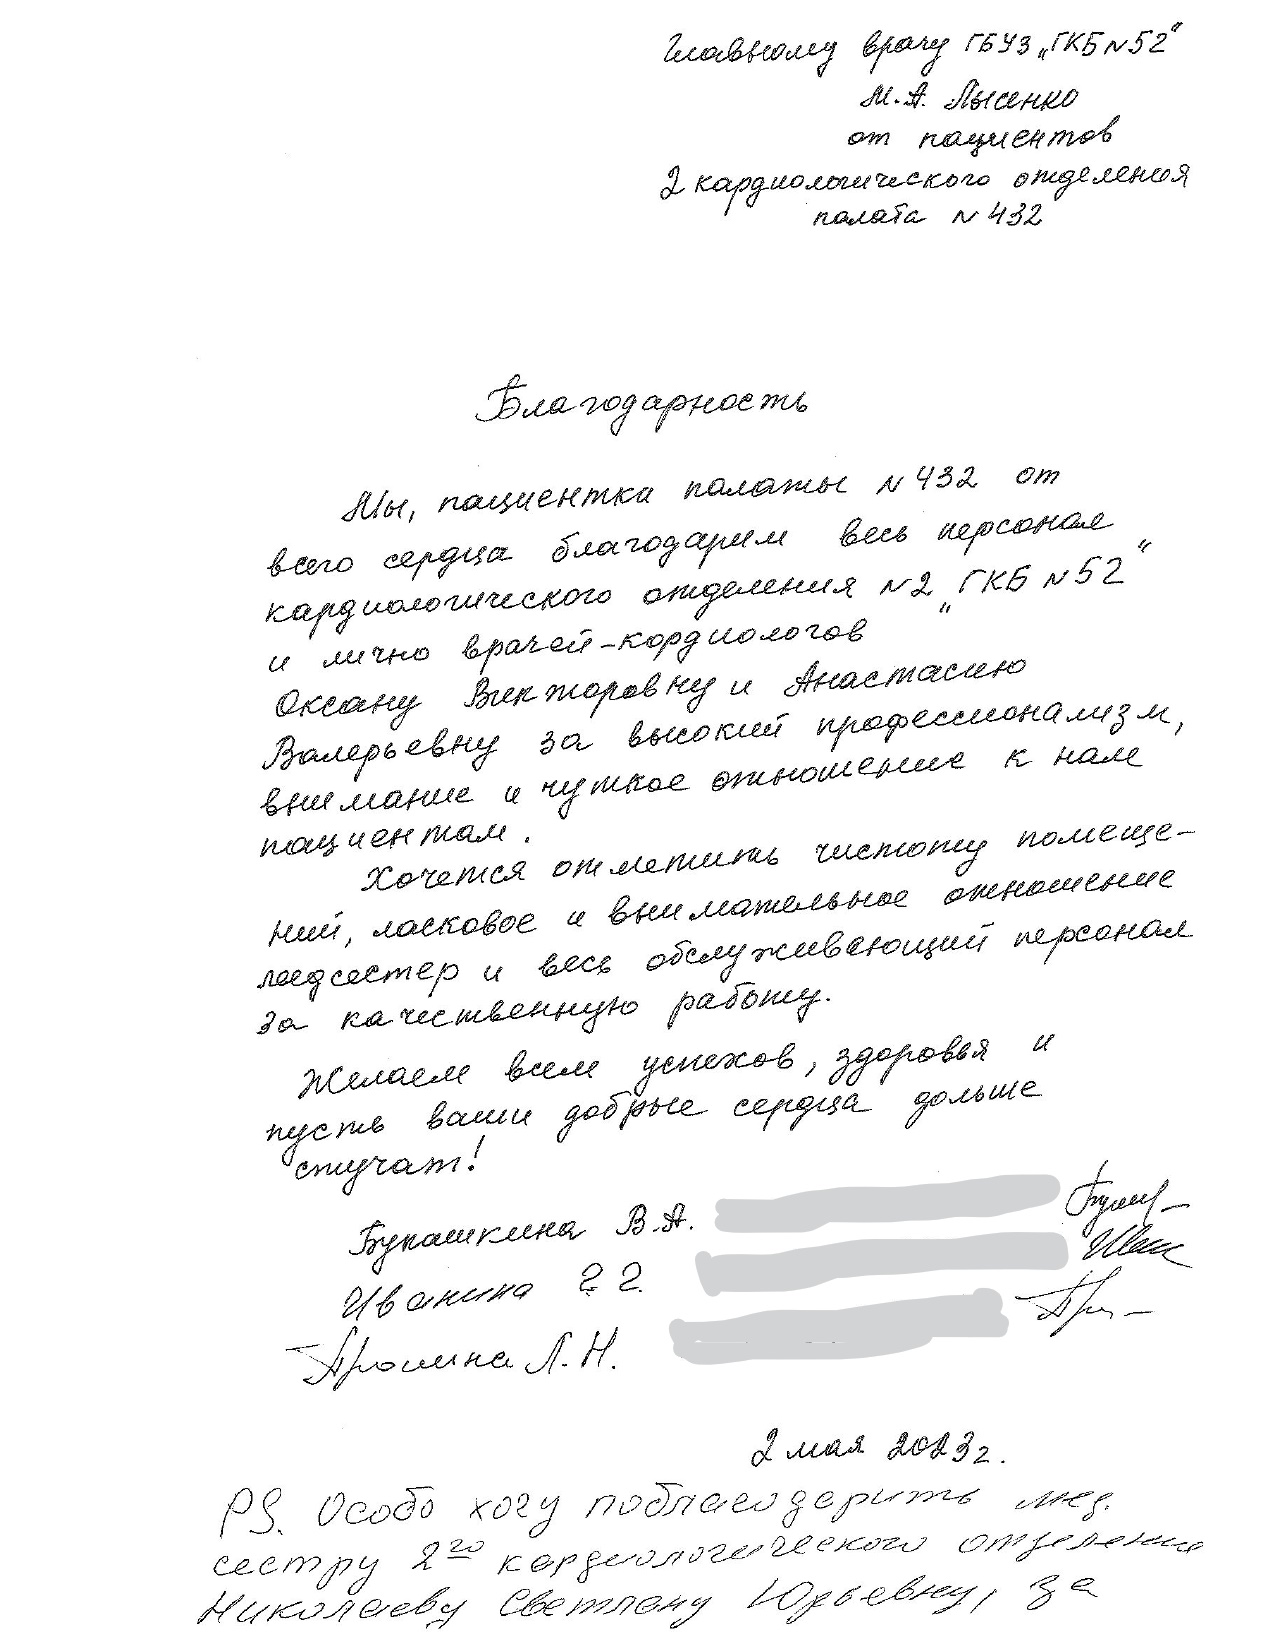 Главному врачу ГБУЗ „ГКБ N 52"
М.А. Лысенко
от пациентов
2 кардиологического отделения
палата N 432
Благодарность
Мы, пациентки палаты N 432 от
всего сердца благодарим весь персонал
кардиологического отделения N 2 „ГКБ N 52"
и лично врачей-кордиологов
Оксану Викторовну и Анастасию
Валерьевну за высокий профессионализм,
внимание и чуткое отношение к нам
пациентам.
Хочется отметить чистоту помеще-
ний, ласковое и внимательное отношение
медсестер и весь обслуживающий персонал
за качественную работу.
Желаем всем успехов, здоровья и
пусть ваши добрые сердца дольше
стучат!
Букашкина В.А.
Иванина Г.Г.
Пронина Л.Н.
2 мая 2023 г.
PS. Особо хочу поблагодарить мед.
сестру 2го кардиологического отделения
Николаеву Светлану Юрьевну, за